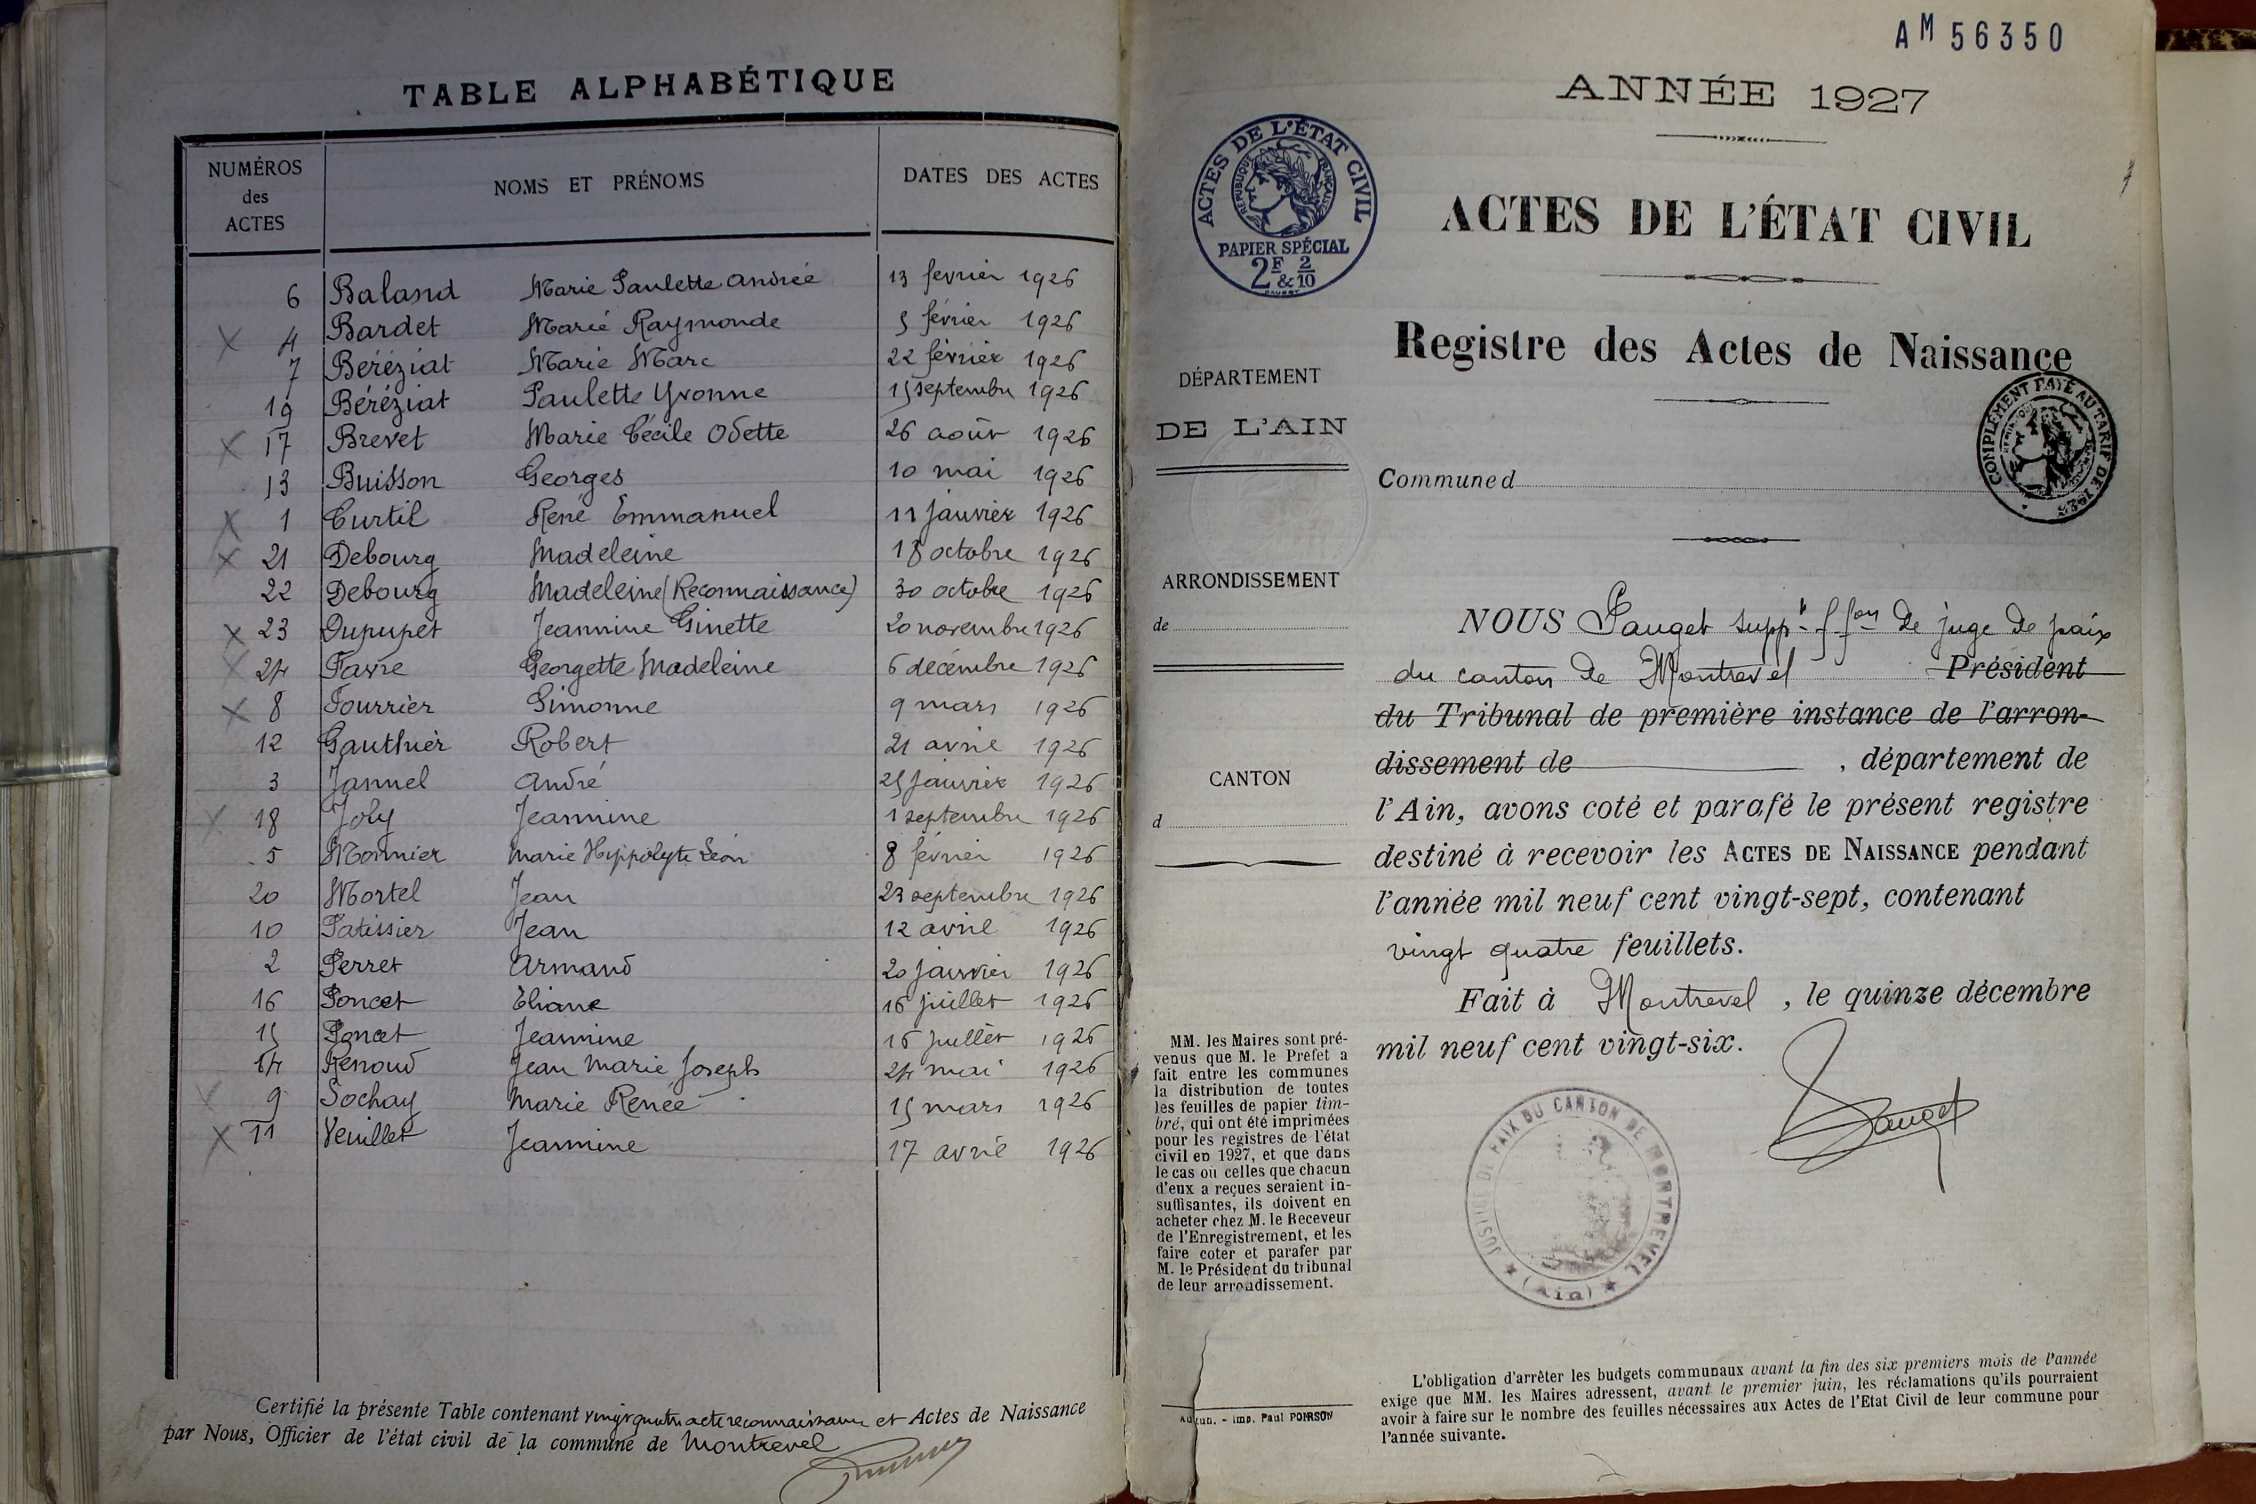 TABLE ALPHABÉTIQUE
NUMÉROS des ACTES
NOMS ET PRÉNOMS
DATES DES ACTES
6 Baland Marie Paulette Andrée 13 février 1926
4 Bardet Marie Raymonde 5 février 1926
7 Béréziat Marie Marc 22 février 1926
19 Béréziat Paulette Yvonne 15 septembre 1926
17 Brevet Marie Cécile Odette 26 août 1926
13 Buisson Georges 10 mai 1926
1 Curtil René Emmanuel 11 janvier 1926
21 Debourg Madeleine 18 octobre 1926
22 Debourg Madeleine (Reconnaissance) 30 octobre 1926
23 Dupupet Jeannine Ginette 20 novembre 1926
24 Favre Georgette Madeleine 6 décembre 1926
8 Fourrier Simonne 9 mars 1926
12 Gauthier Robert 21 avril 1926
3 Jannel André 25 janvier 1926
18 Joly Jeannine 1 septembre 1926
5 Monnier Marie Hyppolyte Léon 8 février 1926
20 Mortel Jean 23 septembre 1926
10 Patissier Jean 12 avril 1926
2 Perret Armand 20 janvier 1926
16 Poncet Eliane 16 juillet 1926
15 Poncet Jeannine 16 juillet 1926
14 Renoud Jean Marie Joseph 24 mai 1926
9 Sochay Marie Renée 15 mars 1926
11 Veuillet Jeannine 17 avril 1926
Certifié la présente Table contenant vingt quatre acte reconnaissance et Actes de Naissance
par Nous, Officier de l'état civil de la commune de Montrevel
AM 56350
ANNÉE 1927
ACTES DE L'ÉTAT CIVIL
RÉPUBLIQUE FRANÇAISE
PAPIER SPÉCIAL
2F & 2/10
ACTES DE L'ÉTAT CIVIL
Registre des Actes de Naissance
COMPLÉMENT PAYÉ AU TARIF DE 1925
DÉPARTEMENT
DE L'AIN
Commune d
ARRONDISSEMENT
de
CANTON
d
NOUS Pauget suppt f. fon de juge de paix
du canton de Montrevel Président
du Tribunal de première instance de l'arron-
dissement de , département de
l'Ain, avons coté et parafé le présent registre
destiné à recevoir les ACTES DE NAISSANCE pendant
l'année mil neuf cent vingt-sept, contenant
vingt quatre feuillets.
Fait à Montrevel, le quinze décembre
mil neuf cent vingt-six.
Pauget
JUSTICE DE PAIX DU CANTON DE MONTREVEL
(Ain)
MM. les Maires sont pré-
venus que M. le Prefet a
fait entre les communes
la distribution de toutes
les feuilles de papier tim-
bré, qui ont été imprimées
pour les registres de l'état
civil en 1927, et que dans
le cas où celles que chacun
d'eux a reçues seraient in-
suffisantes, ils doivent en
acheter chez M. le Receveur
de l'Enregistrement, et les
faire coter et parafer par
M. le Président du tribunal
de leur arrondissement.
Autun. - Imp. Paul POIRSON
L'obligation d'arrêter les budgets communaux avant la fin des six premiers mois de l'année
exige que MM. les Maires adressent, avant le premier juin, les réclamations qu'ils pourraient
avoir à faire sur le nombre des feuilles nécessaires aux Actes de l'Etat Civil de leur commune pour
l'année suivante.